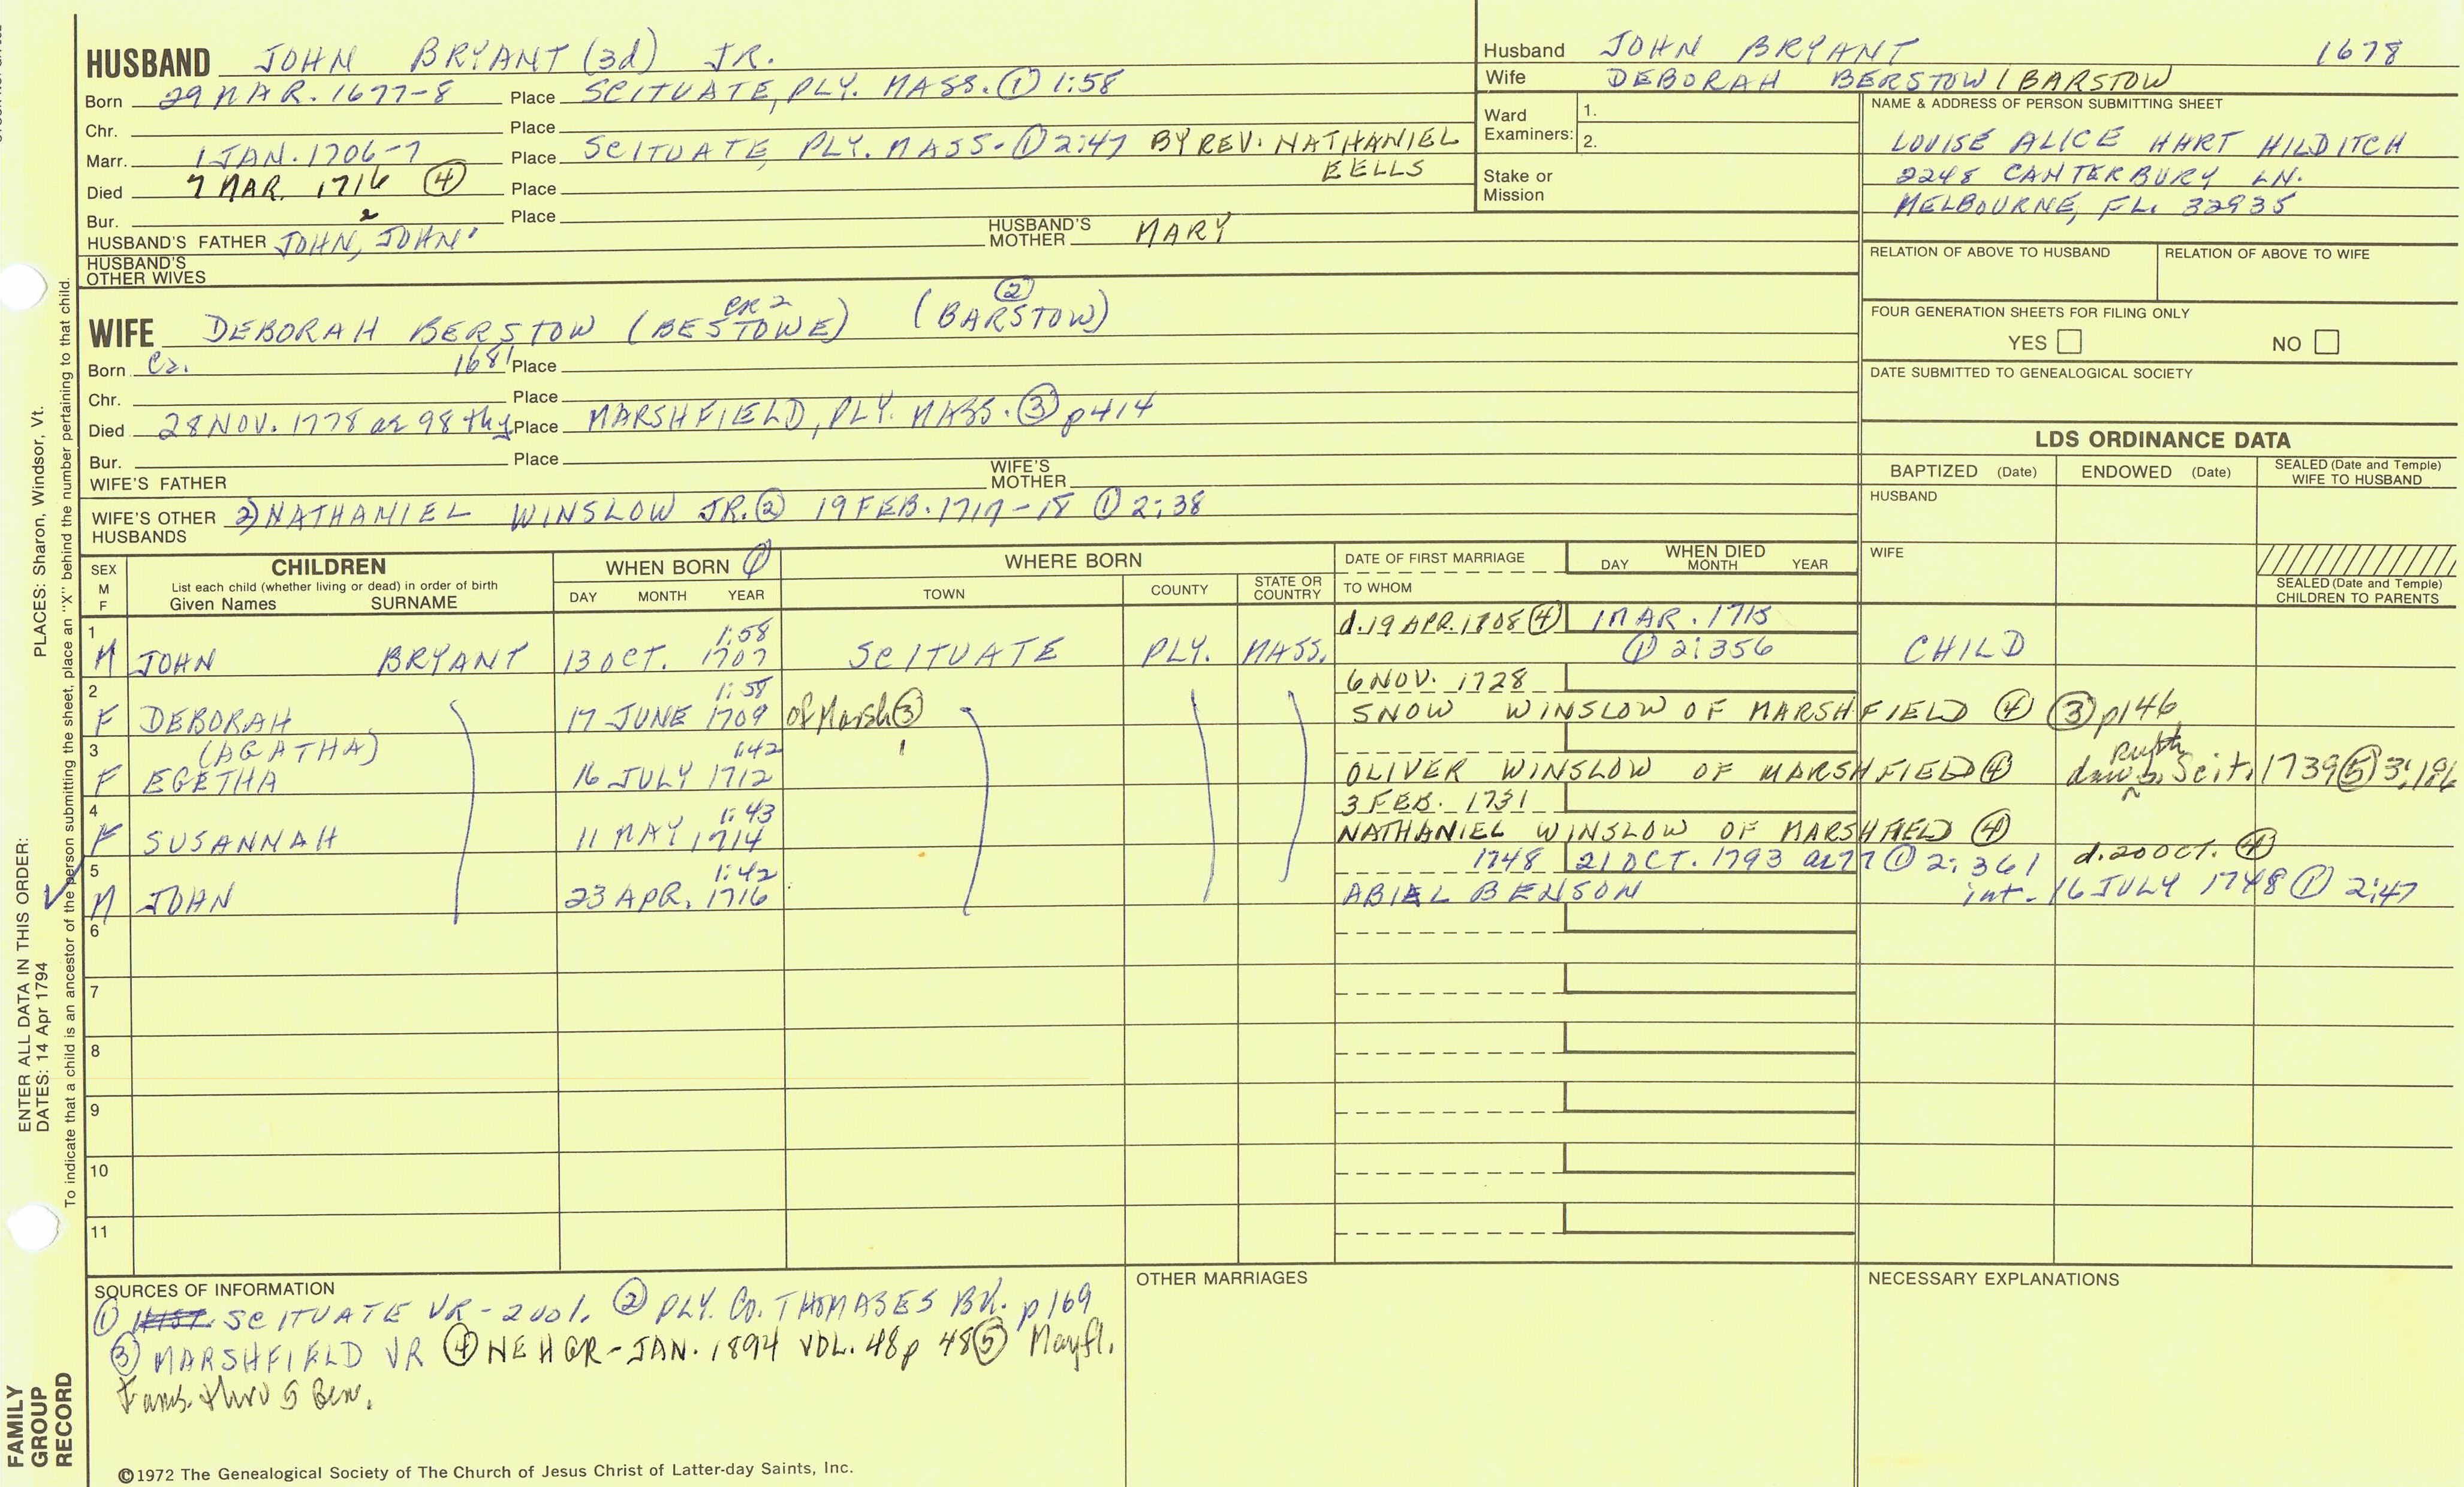 HUSBAND JOHN BRYANT (3d) JR.
Born 29 MAR. 1677-8 Place SCITUATE, PLY. MASS. ① 1:58
Chr. Place
Marr. 1 JAN. 1706-7 Place SCITUATE, PLY. MASS. ① 2:47 BY REV. NATHANIEL EELLS
Died 7 MAR. 1716 ④ Place
Bur. Place
HUSBAND'S FATHER JOHN,² JOHN¹ HUSBAND'S MOTHER MARY
HUSBAND'S OTHER WIVES
Husband JOHN BRYANT 1678
Wife DEBORAH BERSTOW / BARSTOW
Ward Examiners: 1.
2.
Stake or Mission
NAME & ADDRESS OF PERSON SUBMITTING SHEET
LOUISE ALICE HART HILDITCH
2248 CANTERBURY LN.
MELBOURNE, FL. 32935
RELATION OF ABOVE TO HUSBAND RELATION OF ABOVE TO WIFE
FOUR GENERATION SHEETS FOR FILING ONLY
YES NO
DATE SUBMITTED TO GENEALOGICAL SOCIETY
②
WIFE DEBORAH BERSTOW (BESTOWE) (BARSTOW)
Born Ca. 1681 Place
Chr. Place
Died 28 NOV. 1778 ae 98th y Place MARSHFIELD, PLY. MASS. ③ p414
Bur. Place
WIFE'S FATHER WIFE'S MOTHER
WIFE'S OTHER HUSBANDS 2) NATHANIEL WINSLOW JR. ② 19 FEB. 1717-18 ① 2:38
LDS ORDINANCE DATA
BAPTIZED (Date) ENDOWED (Date) SEALED (Date and Temple) WIFE TO HUSBAND
HUSBAND
WIFE
SEALED (Date and Temple) CHILDREN TO PARENTS
SEX M F
CHILDREN
List each child (whether living or dead) in order of birth
Given Names SURNAME
WHEN BORN ①
DAY MONTH YEAR
WHERE BORN
TOWN COUNTY STATE OR COUNTRY
DATE OF FIRST MARRIAGE
TO WHOM
WHEN DIED
DAY MONTH YEAR
1:58 d. 19 APR. 1708 ④ 1 MAR. 1715
1 M JOHN BRYANT 13 OCT. 1707 SCITUATE PLY. MASS. ① 2:356 CHILD
1:58 6 NOV. 1728
2 F DEBORAH 17 JUNE 1709 of Marsh ③ SNOW WINSLOW OF MARSHFIELD ④ ③ p146
(AGATHA) 1:42 Ruth
3 F EGETHA 16 JULY 1712 OLIVER WINSLOW OF MARSHFIELD ④ dau b. Scit. 1739 ⑤ 3:186
1:43 3 FEB. 1731
4 F SUSANNAH 11 MAY 1714 NATHANIEL WINSLOW OF MARSHFIELD ④
1:42 1748 21 OCT. 1793 ae 77 ① 2:361 d. 20 OCT. ④
5 M JOHN 23 APR. 1716 ABIEL BENSON int. 16 JULY 1748 ① 2:47
6
7
8
9
10
11
SOURCES OF INFORMATION
① SCITUATE VR - 2 vol. ② PLY. CO. THOMASES BK. p169
③ MARSHFIELD VR ④ NEHGR - JAN. 1894 VOL. 48 p 48 ⑤ Mayfl.
Fams. thru 5 Gen.
OTHER MARRIAGES
NECESSARY EXPLANATIONS
©1972 The Genealogical Society of The Church of Jesus Christ of Latter-day Saints, Inc.
FAMILY GROUP RECORD
ENTER ALL DATA IN THIS ORDER:
DATES: 14 Apr 1794 PLACES: Sharon, Windsor, Vt.
To indicate that a child is an ancestor of the person submitting the sheet, place an "X" behind the number pertaining to that child.